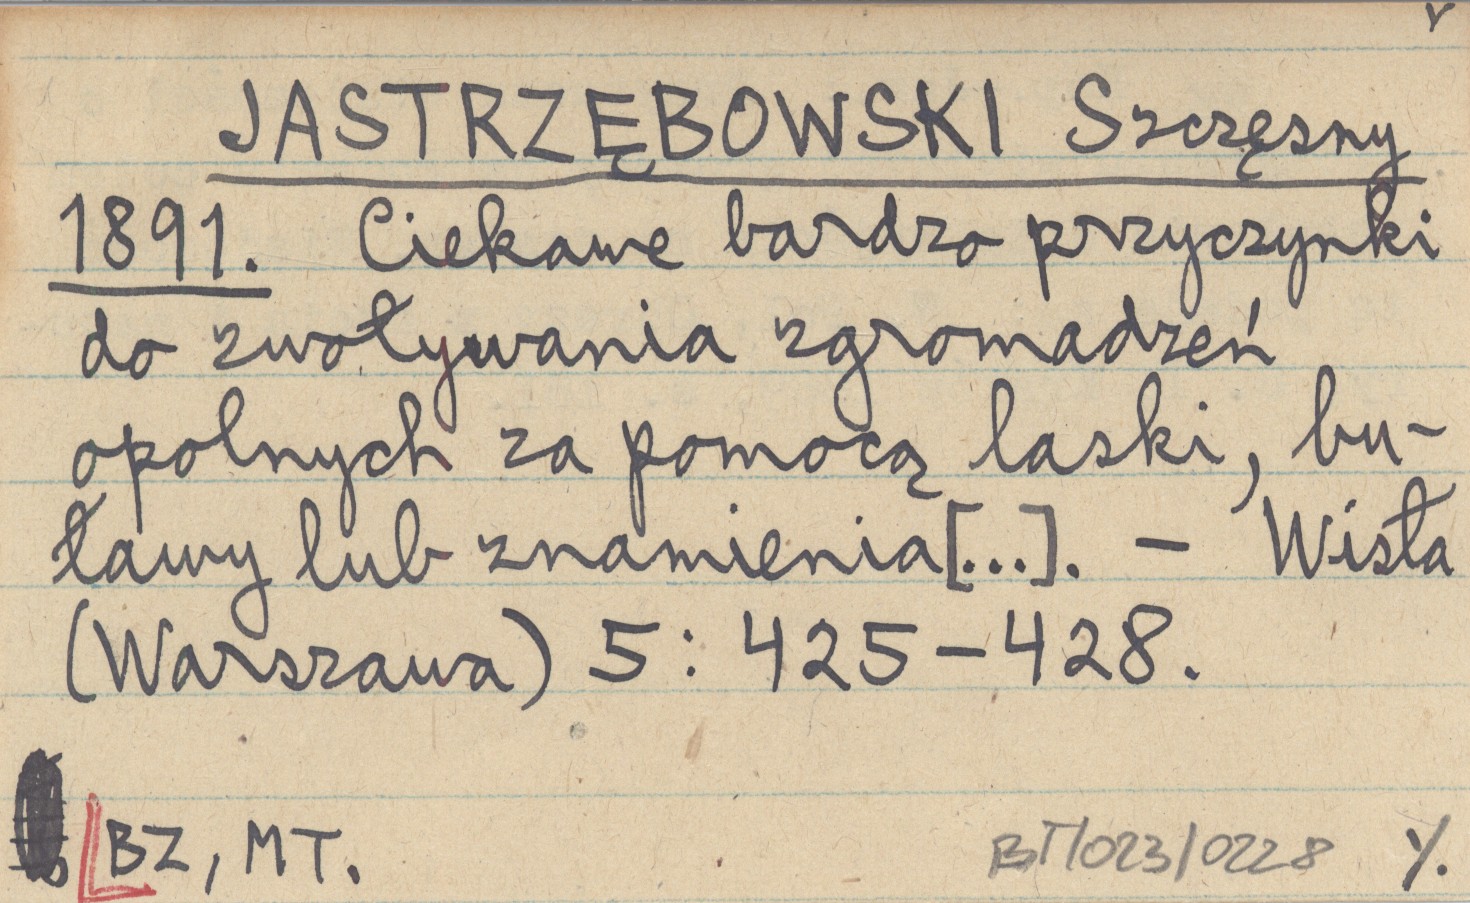 JASTRZĘBOWSKI Szczęsny
1891. Ciekawe bardzo przyczynki
do zwoływania zgromadzeń
opolnych za pomocą laski, bu-
ławy lub znamienia[...]. – Wisła
(Warszawa) 5: 425–428.
BZ, MT. BT/023/0228 Y.